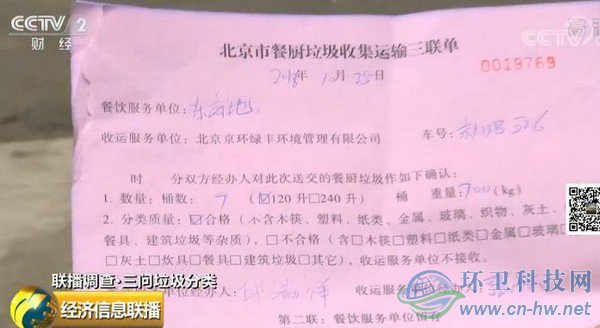 CCTV 2
财经
CCTV
北京市餐厨垃圾收集运输三联单
2018年10月25日
0019769
餐饮服务单位:
收运服务单位:北京京环绿丰环境管理有限公司 车号:
时 分双方经办人对此次送交的餐厨垃圾作如下确认:
1. 数量: 桶数: 7 (☑120升□240升) 桶 重量: 700 (kg)
2. 分类质量:☑合格(不含木筷、塑料、纸类、金属、玻璃、织物、灰土、
餐具、建筑垃圾等杂质),□不合格(含□木筷□塑料□纸类□金属□玻璃
□灰土□炊具□餐具□建筑垃圾□其它),收运服务单位不接收。
联播调查·三问垃圾分类
单位经办人: 收运服务单位经办
经济信息联播
第二联:餐饮服务单位留存
环卫科技网
www.cn-hw.net